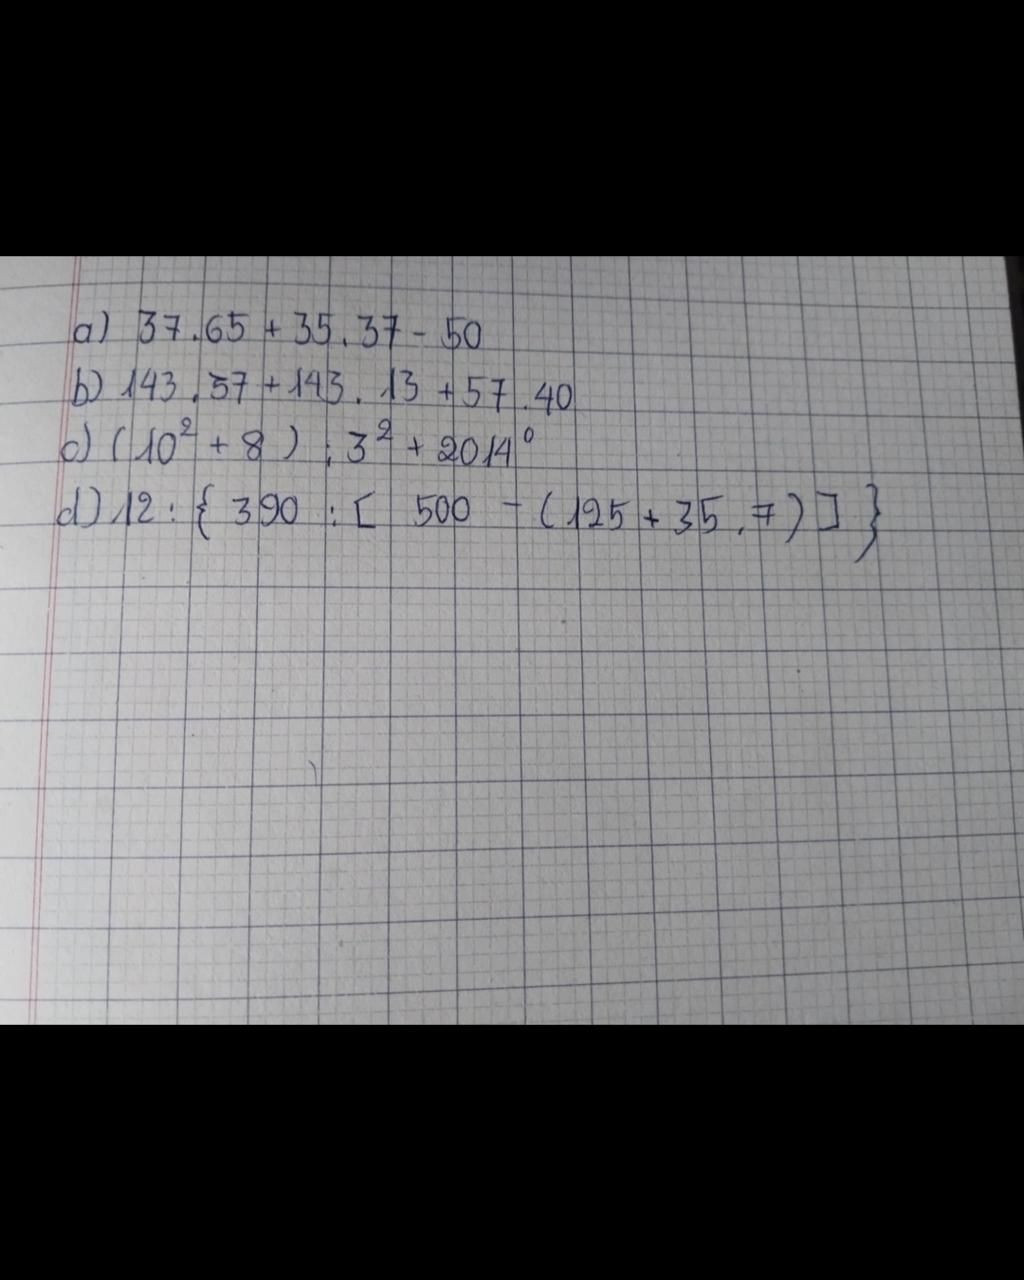 a) 37.65 + 35.37 - 50
b) 143.37 + 143.13 + 57.40
c) (10² + 8) : 3² + 2014⁰
d) 12 : { 390 : [ 500 - (125 + 35.7) ] }